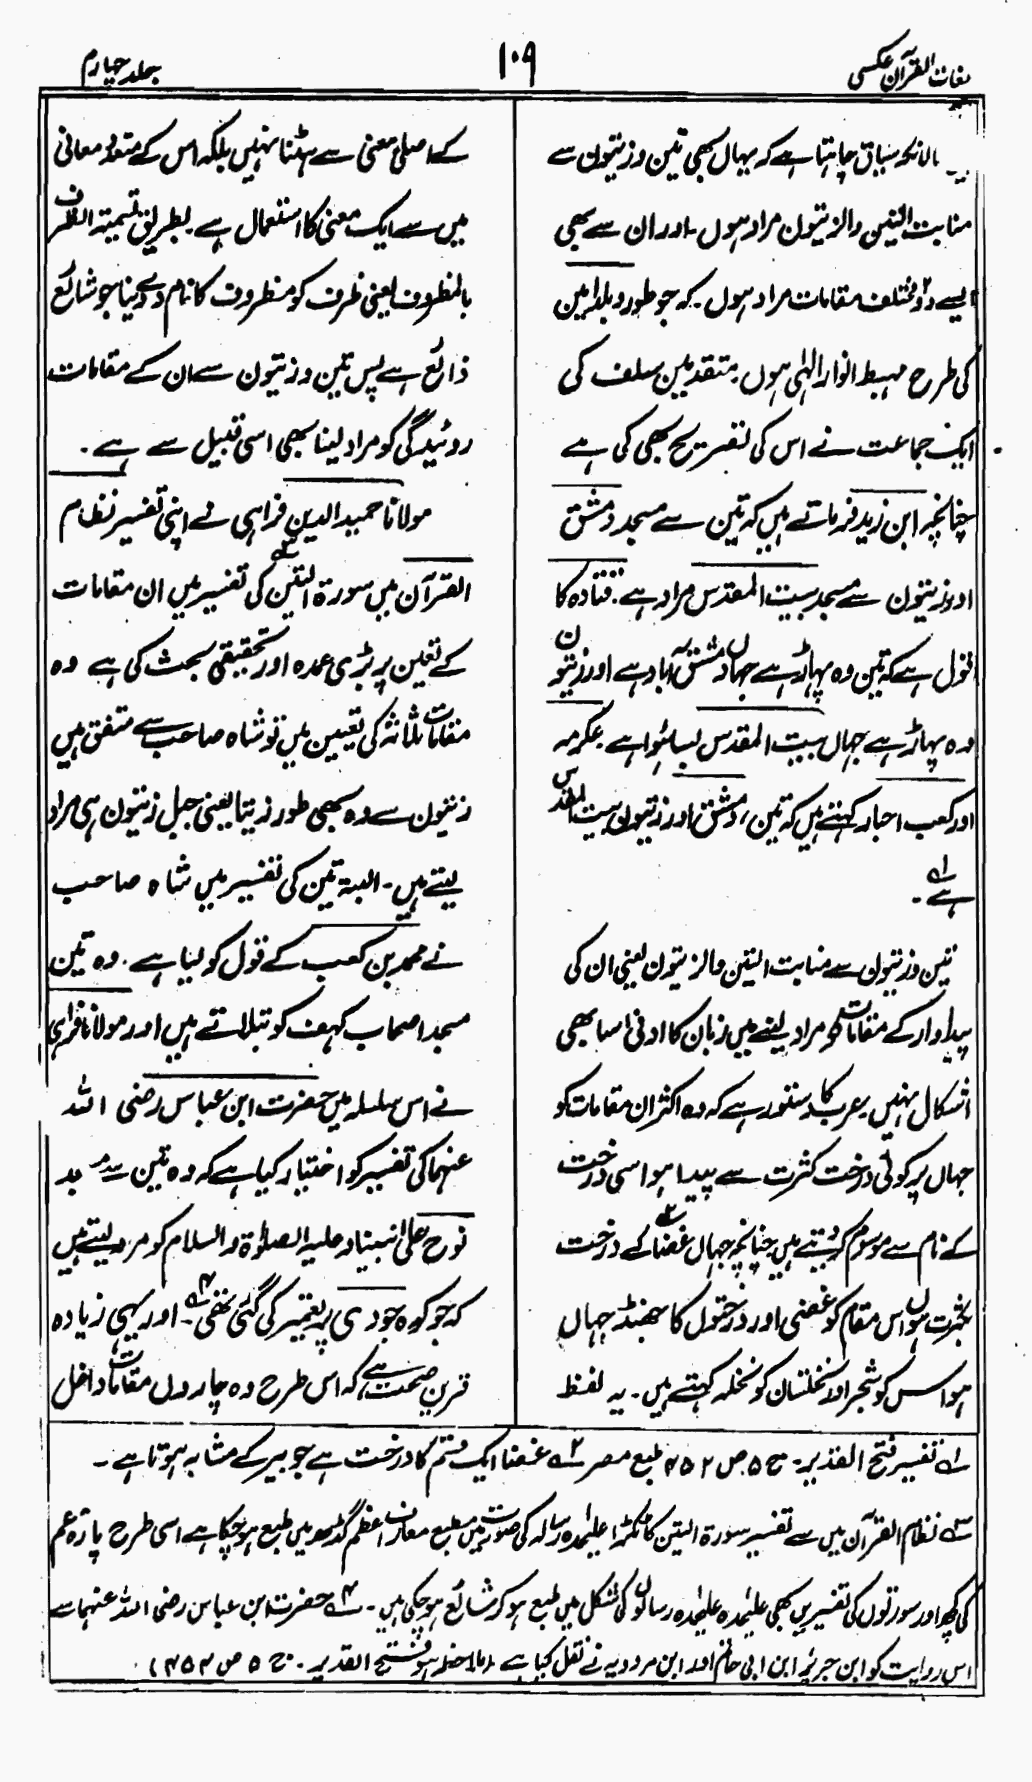 لغات القرآن عکسی
۱۰۹
جلد چہارم
حالانکہ سیاق چاہتا ہے کہ یہاں بھی تین و زیتون سے
منابت التین والزیتون مراد ہوں۔ اور ان سے بھی
ایسے دو مختلف مقامات مراد ہوں۔ کہ جو طور و بلد امین
کی طرح مہبط انوار الٰہی ہوں۔ متقدمین سلف کی
ایک جماعت نے اس کی تصریح بھی کی ہے
چنانچہ ابن زید فرماتے ہیں کہ تین سے مسجد دمشق
اور زیتون سے مسجد بیت المقدس مراد ہے۔ قتادہ کا
قول ہے کہ تین وہ پہاڑ ہے جہاں دمشق آباد ہے اور زیتون
وہ پہاڑ ہے جہاں بیت المقدس بسا ہوا ہے۔ عکرمہ
اور کعب احبار کہتے ہیں کہ تین، دمشق اور زیتون بیت المقدس
ہے۔ ۱؎
تین و زیتون سے منابت التین والزیتون یعنی ان کی
پیداوار کے مقامات کو مراد لینے میں زبان کا ادنی اسا بھی
اشکال نہیں۔ عرب کا دستور ہے کہ وہ اکثر ان مقامات کو
جہاں پر کوئی درخت کثرت سے پیدا ہو اسی درخت
کے نام سے موسوم کر دیتے ہیں چنانچہ جہاں غضا ۲؎ کے درخت
بکثرت ہوں اس مقام کو غضیٰ اور درختوں کا جھنڈ جہاں
ہو اس کو شجر اور نخلستان کو نخلہ کہتے ہیں۔ یہ لفظ
کے اصلی معنی سے ہٹنا نہیں بلکہ اس کے متعدد معانی
میں سے ایک معنی کا استعمال ہے۔ بطریق تسمیۃ الظرف
بالمظروف یعنی ظرف کو مظروف کا نام دے دینا جو شائع
ذائع ہے پس تین و زیتون سے ان کے مقامات
روئیدگی کو مراد لینا بھی اسی قبیل سے ہے۔
مولانا حمید الدین فراہی نے اپنی تفسیر نظام
القرآن میں سورۃ التین ۳؎ کی تفسیر میں ان مقامات
کے تعین پر بڑی عمدہ اور تحقیقی بحث کی ہے وہ
مقامات ثلاثہ کی تعیین میں تو شاہ صاحب سے متفق ہیں
زیتون سے وہ بھی طور زیتا یعنی جبل زیتون ہی مراد
لیتے ہیں۔ البتہ تین کی تفسیر میں شاہ صاحب
نے محمد بن کعب کے قول کو لیا ہے۔ وہ تین
مسجد اصحاب کہف کو بتلاتے ہیں اور مولانا فراہی
نے اس سلسلہ میں حضرت ابن عباس رضی اللہ
عنہما کی تفسیر کو اختیار کیا ہے کہ وہ تین سے مسجد
نوح علیٰ نبینا و علیہ الصلوٰۃ والسلام کو مراد لیتے ہیں
کہ جو کوہ جودی پر تعمیر کی گئی تھی ۴؎۔ اور یہی زیادہ
قرین صحت ہے کہ اس طرح وہ چاروں مقامات داخل
۱؎ تفسیر فتح القدیر۔ ج ۵ ص ۴۵۲ طبع مصر ۲؎ غضا ایک قسم کا درخت ہے جو بیر کے مشابہ ہوتا ہے۔
۳؎ نظام القرآن میں سے تفسیر سورۃ التین کا ٹکڑا علیحدہ رسالہ کی صورت میں مطبع معارف اعظم گڈھ میں طبع ہو چکا ہے اسی طرح پارہ عم
کی کچھ اور سورتوں کی تفسیریں بھی علیحدہ علیحدہ رسالوں کی شکل میں طبع ہو کر شائع ہو چکی ہیں۔ ۴؎ حضرت ابن عباس رضی اللہ عنہما سے
اس روایت کو ابن جریر، ابن ابی حاتم اور ابن مردویہ نے نقل کیا ہے (ملاحظہ ہو فتح القدیر۔ ج ۵ ص ۴۵۳)۔